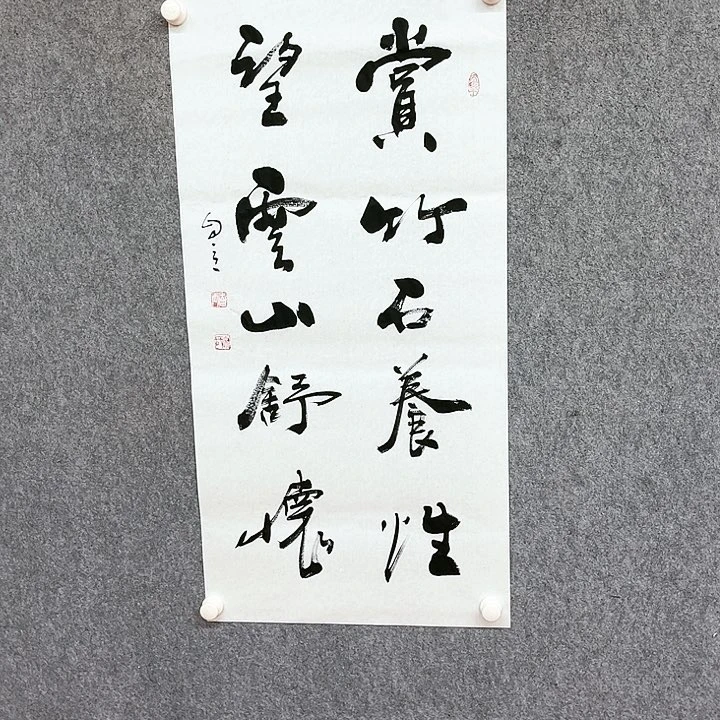 賞竹石養性
望雲山舒懷